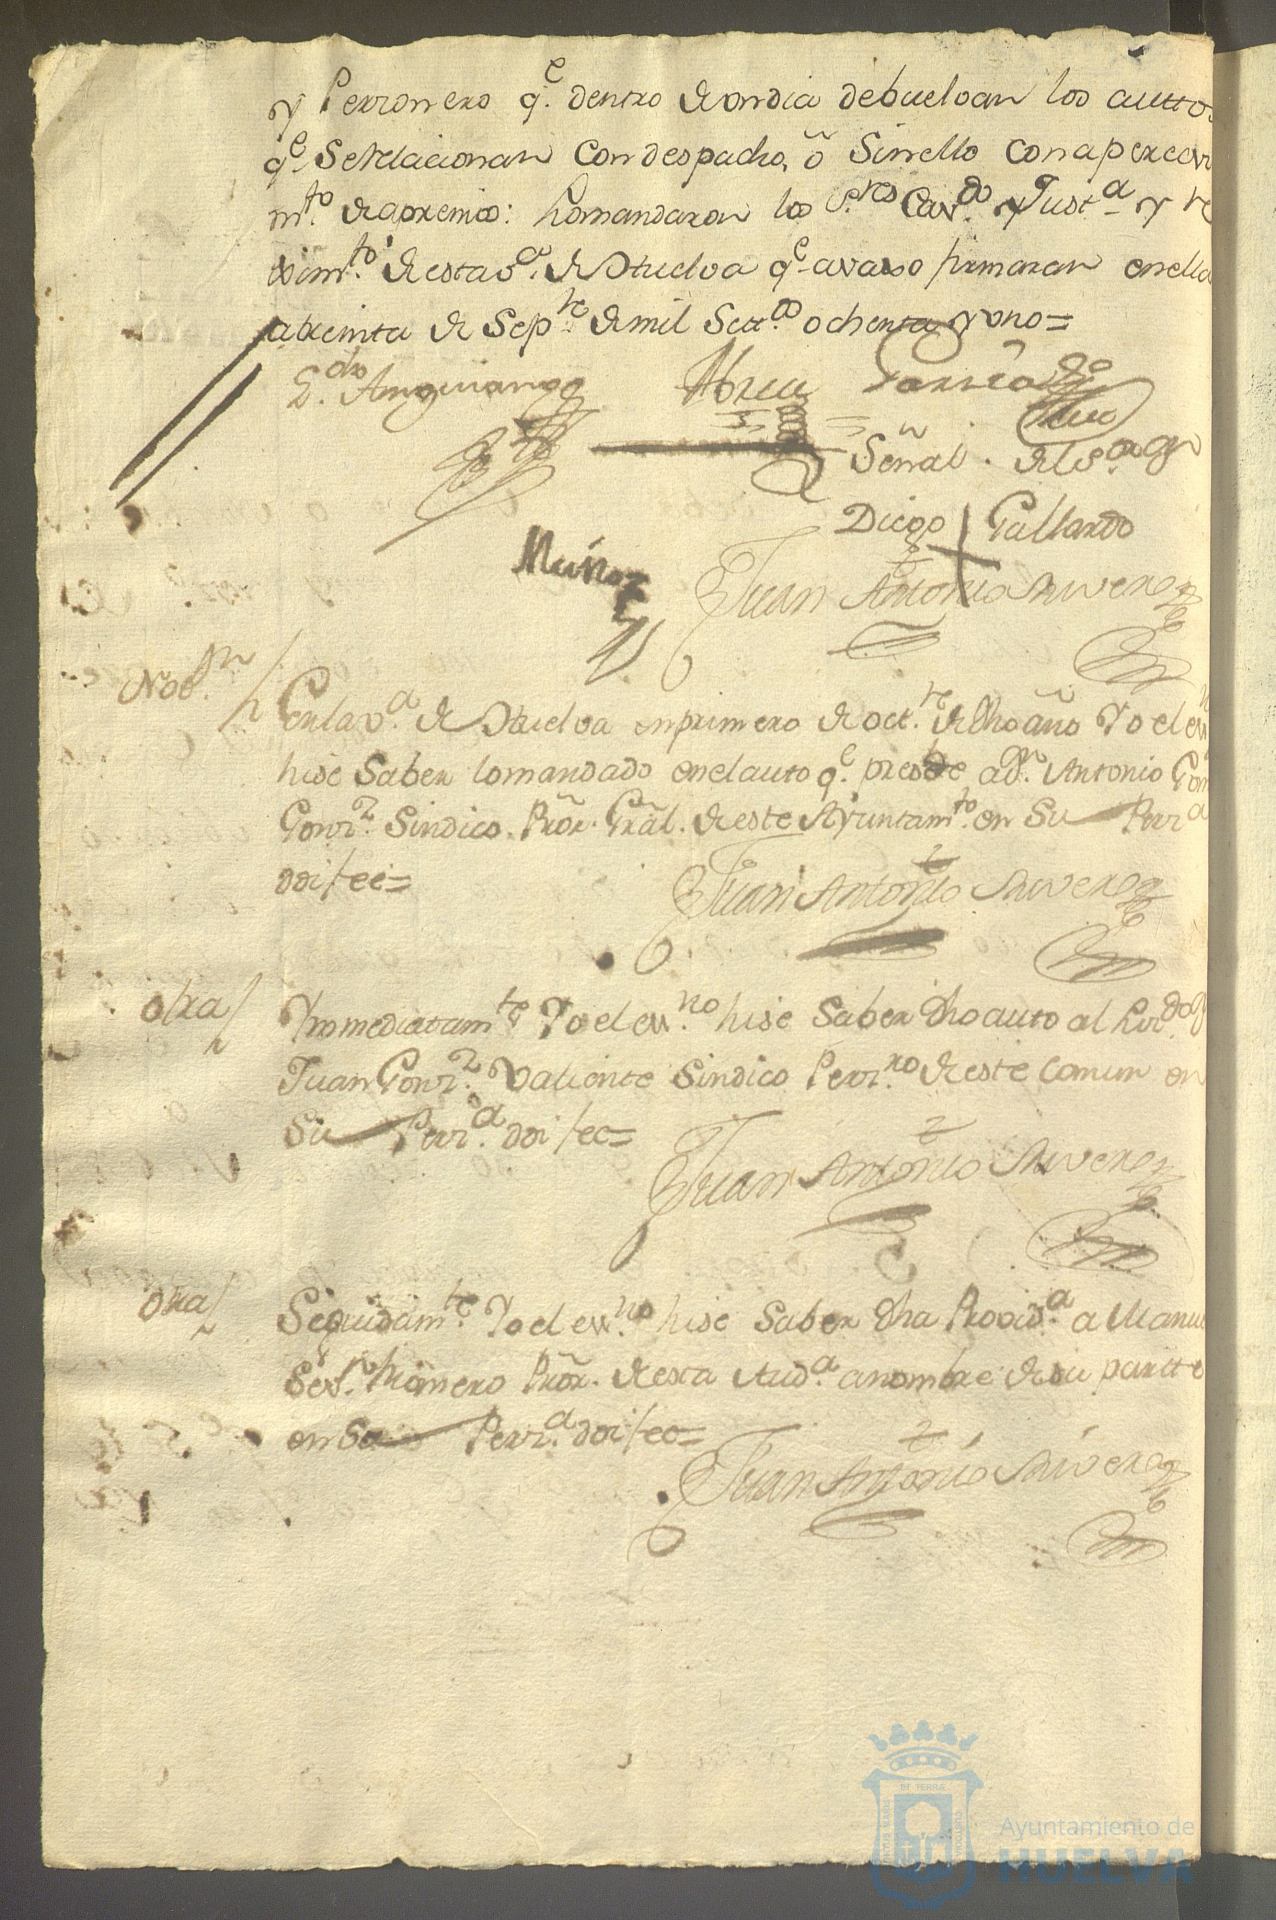 y Personero q.e dentro de un dia debuelvan los autto
q.e Se relacionan con despacho, ô Sin ello con apercevi
m.to de apremio: Lo mandaron los S.res Cav.do y Just.a y re
ximt.to de esta v.a de Huelva q.e avaxo firmaran en ella
a treinta de Sep.te de mil Sett.os ochenta y uno=
L.do Anguiano
Abreu
Garcia
Señal del S.or
Diego Gallardo
Muñoz
Juan Antonio
Not.on
En la v.a de Huelva en primero de oct.re de dho año Yo el es
hise Saber lo mandado en el auto q.e presede a D.n Antonio
Gonz.z Sindico Pror. Gral. de este Ayuntam.to en Su Pers.a
doi fee=
Juan Antonio
otra
Ynmediatam.te Yo el es.no hise Saber dho auto al Liz.do D
Juan Gonz.z Valiente Sindico Pers.ro de este Comun en
Su Pers.a doi fee=
Juan Antonio
otra
Seguidam.te Yo el es.no hise Saber dha Provid.a a Manu
Romero Pror. de esta Aud.a a nombre de su partte
en Su Pers.a doi fee=
Juan Antonio
Ayuntamiento de
HUELVA